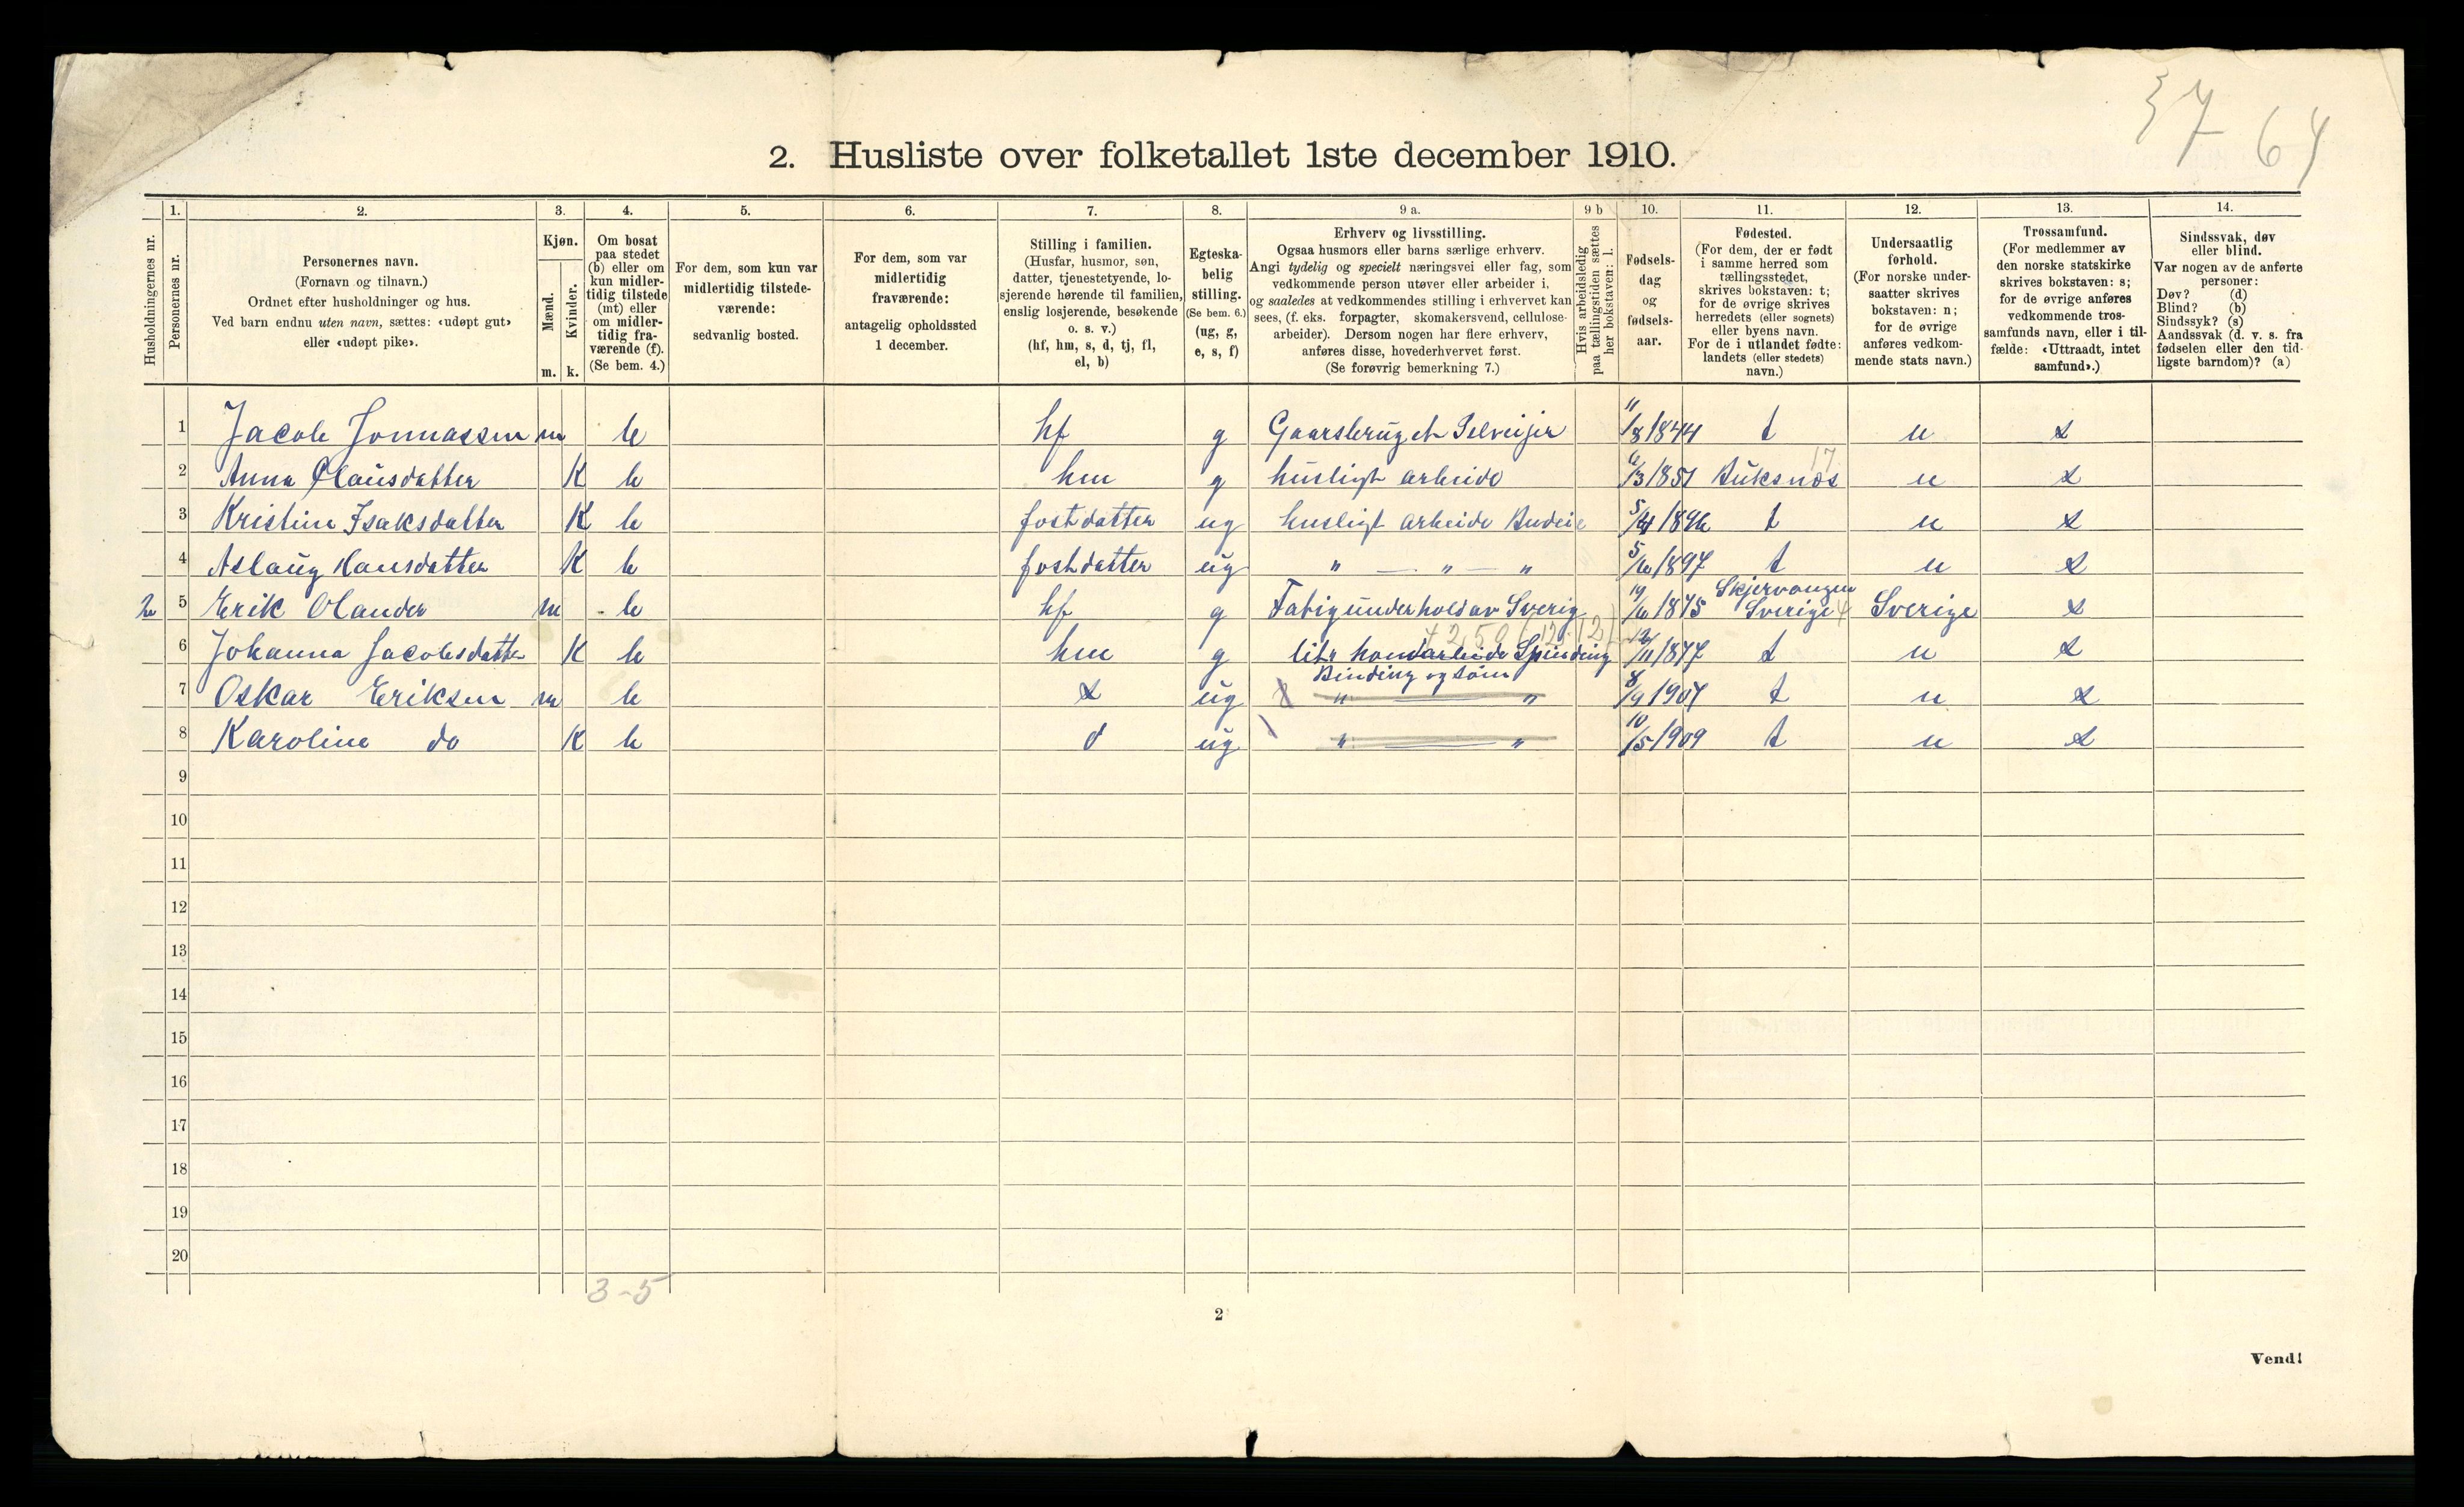 37 64
2. Husliste over folketallet 1ste december 1910.
1. 2. 3. 4. 5. 6. 7. 8. 9 a. 9 b 10. 11. 12. 13. 14.
Husholdningernes nr.
Personernes nr.
Personernes navn.
(Fornavn og tilnavn.)
Ordnet efter husholdninger og hus.
Ved barn endnu uten navn, sættes: «udøpt gut»
eller «udøpt pike».
Kjøn.
Mænd.
Kvinder.
m. k.
Om bosat
paa stedet
(b) eller om
kun midler-
tidig tilstede
(mt) eller
om midler-
tidig fra-
værende (f).
(Se bem. 4.)
For dem, som kun var
midlertidig tilstede-
værende:
sedvanlig bosted.
For dem, som var
midlertidig
fraværende:
antagelig opholdssted
1 december.
Stilling i familien.
(Husfar, husmor, søn,
datter, tjenestetyende, lo-
sjerende hørende til familien,
enslig losjerende, besøkende
o. s. v.)
(hf, hm, s, d, tj, fl,
el, b)
Egteska-
belig
stilling.
(Se bem. 6.)
(ug, g,
e, s, f)
Erhverv og livsstilling.
Ogsaa husmors eller barns særlige erhverv.
Angi tydelig og specielt næringsvei eller fag, som
vedkommende person utøver eller arbeider i,
og saaledes at vedkommendes stilling i erhvervet kan
sees, (f. eks. forpagter, skomakersvend, cellulose-
arbeider). Dersom nogen har flere erhverv,
anføres disse, hovederhvervet først.
(Se forøvrig bemerkning 7.)
Hvis arbeidsledig
paa tællingstiden sættes
her bokstaven: l.
Fødsels-
dag
og
fødsels-
aar.
Fødested.
(For dem, der er født
i samme herred som
tællingsstedet,
skrives bokstaven: t;
for de øvrige skrives
herredets (eller sognets)
eller byens navn.
For de i utlandet fødte:
landets (eller stedets)
navn.)
Undersaatlig
forhold.
(For norske under-
saatter skrives
bokstaven: n;
for de øvrige
anføres vedkom-
mende stats navn.)
Trossamfund.
(For medlemmer av
den norske statskirke
skrives bokstaven: s;
for de øvrige anføres
vedkommende tros-
samfunds navn, eller i til-
fælde: «Uttraadt, intet
samfund».)
Sindssvak, døv
eller blind.
Var nogen av de anførte
personer:
Døv? (d)
Blind? (b)
Sindssyk? (s)
Aandssvak (d. v. s. fra
fødselen eller den tid-
ligste barndom)? (a)
1 Jacob Jonnassen m b hf g Gaarsbrug et Selveijer 11/8 1844 t n s
2 Anna Clausdatter K b hm g husligt arbeide 6/3 1851 Buksnæs 17 n s
3 Kristine Isaksdatter K b fostdatter ug husligt arbeide Budeie 5/4 t n s
4 Aslaug Hansdatter K b fostdatter ug " — " — " 5/6 1897 t n s
2 5 Erik Olander m b hf g Fatigunderhold av Sverig 19/6 1875 Skjervangen Sverige 4 Sverige s
6 Johanna Jacobsdatter K b hm g litt handarbeide Spinding 12/11 1877 t n s
Binding og söm
7 Oskar Eriksen m b s ug " — " 8/9 1907 t n s
8 Karoline do K b d ug " — " 10/5 1909 t n s
9
10
11
12
13
14
15
16
17
18
19
20
3-5
2
Vend!